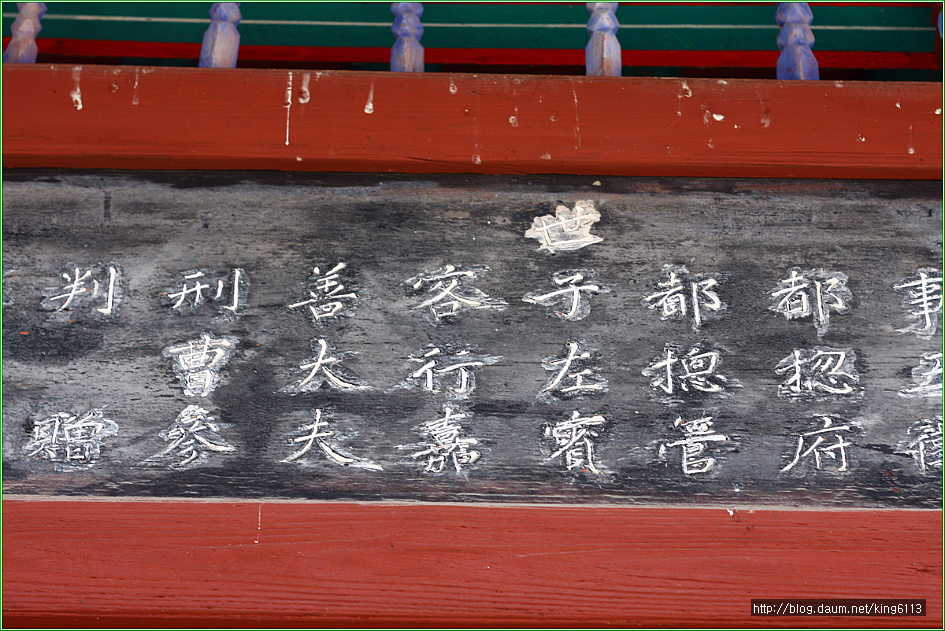 事五衛
都揔府
都摠管
世子左賓
客行嘉
善大夫
刑曹參
判 贈
http://blog.daum.net/king6113